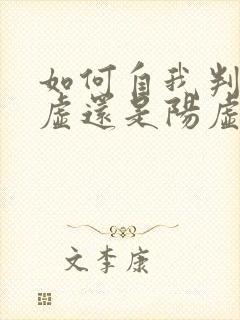 如何自我判
虛還是陽虛
文李康